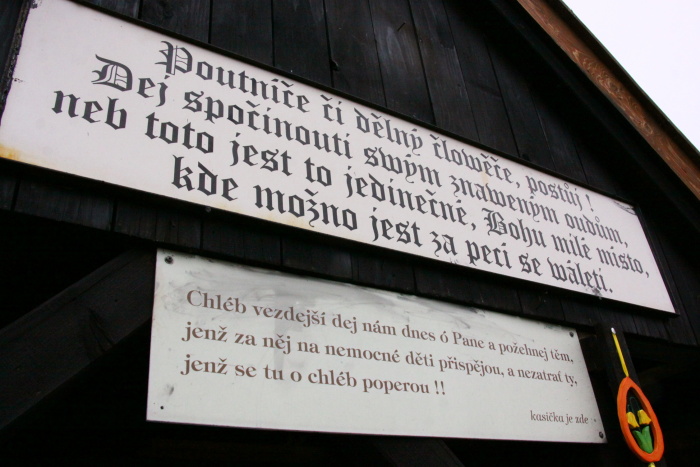 Poutníče či dělný člowěče, postůj !
Dej spočinouti swým znaweným oudům,
neb toto jest to jedinečné, Bohu milé místo,
kde možno jest za pecí se wáleti.
Chléb vezdejší dej nám dnes ó Pane a požehnej těm,
jenž za něj na nemocné děti přispějou, a nezatrať ty,
jenž se tu o chléb poperou !!
kasička je zde